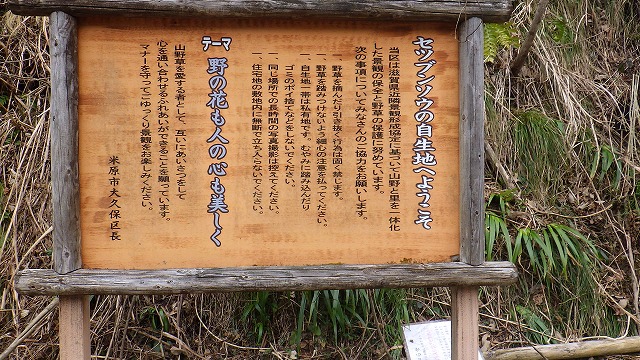 セツブンソウの自生地へようこそ
当区は滋賀県近隣景観形成協定に基づいて山野と里を一体化
した景観の保全と野草の保護に努めています。
次の事項についてみなさんのご協力をお願いします。
一、野草を摘んだり引き抜く行為は固く禁じます。
野草を踏みつけないよう細心の注意を払ってください。
一、自生地一帯は私有地です。むやみに踏み込んだり
ゴミのポイ捨てなどをしないでください。
一、同じ場所での長時間の写真撮影は控えてください。
一、住宅地の敷地内に無断で立ち入らないでください。
テーマ 野の花も人の心も美しく
山野草を愛する者として、互いにあいさつをして
心を通い合わせるふれあいができることを願っています。
マナーを守ってごゆっくり景観をお楽しみください。
米原市大久保区長